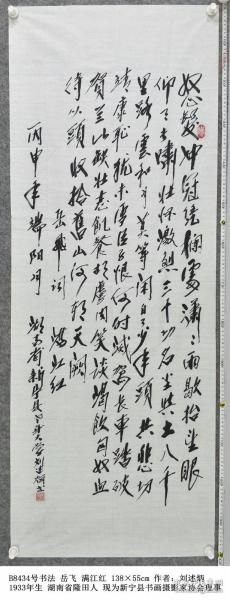 怒髮冲冠凭栏處潇潇雨歇抬望眼
仰天长啸壮怀激烈三十功名尘与土八千
里路雲和月莫等闲白了少年头空悲切
靖康耻犹未雪臣子恨何时滅驾长車踏破
贺兰山缺壮志飢餐胡虏肉笑谈渴飲匈奴血
待从头收拾舊山河朝天阙
岳飛词 满江红
丙申年端阳月
湖南省新宁县
B8434号书法 岳飞 满江红 138×55cm 作者:刘述炳
1933年生 湖南省隆田人 现为新宁县书画摄影家协会理事